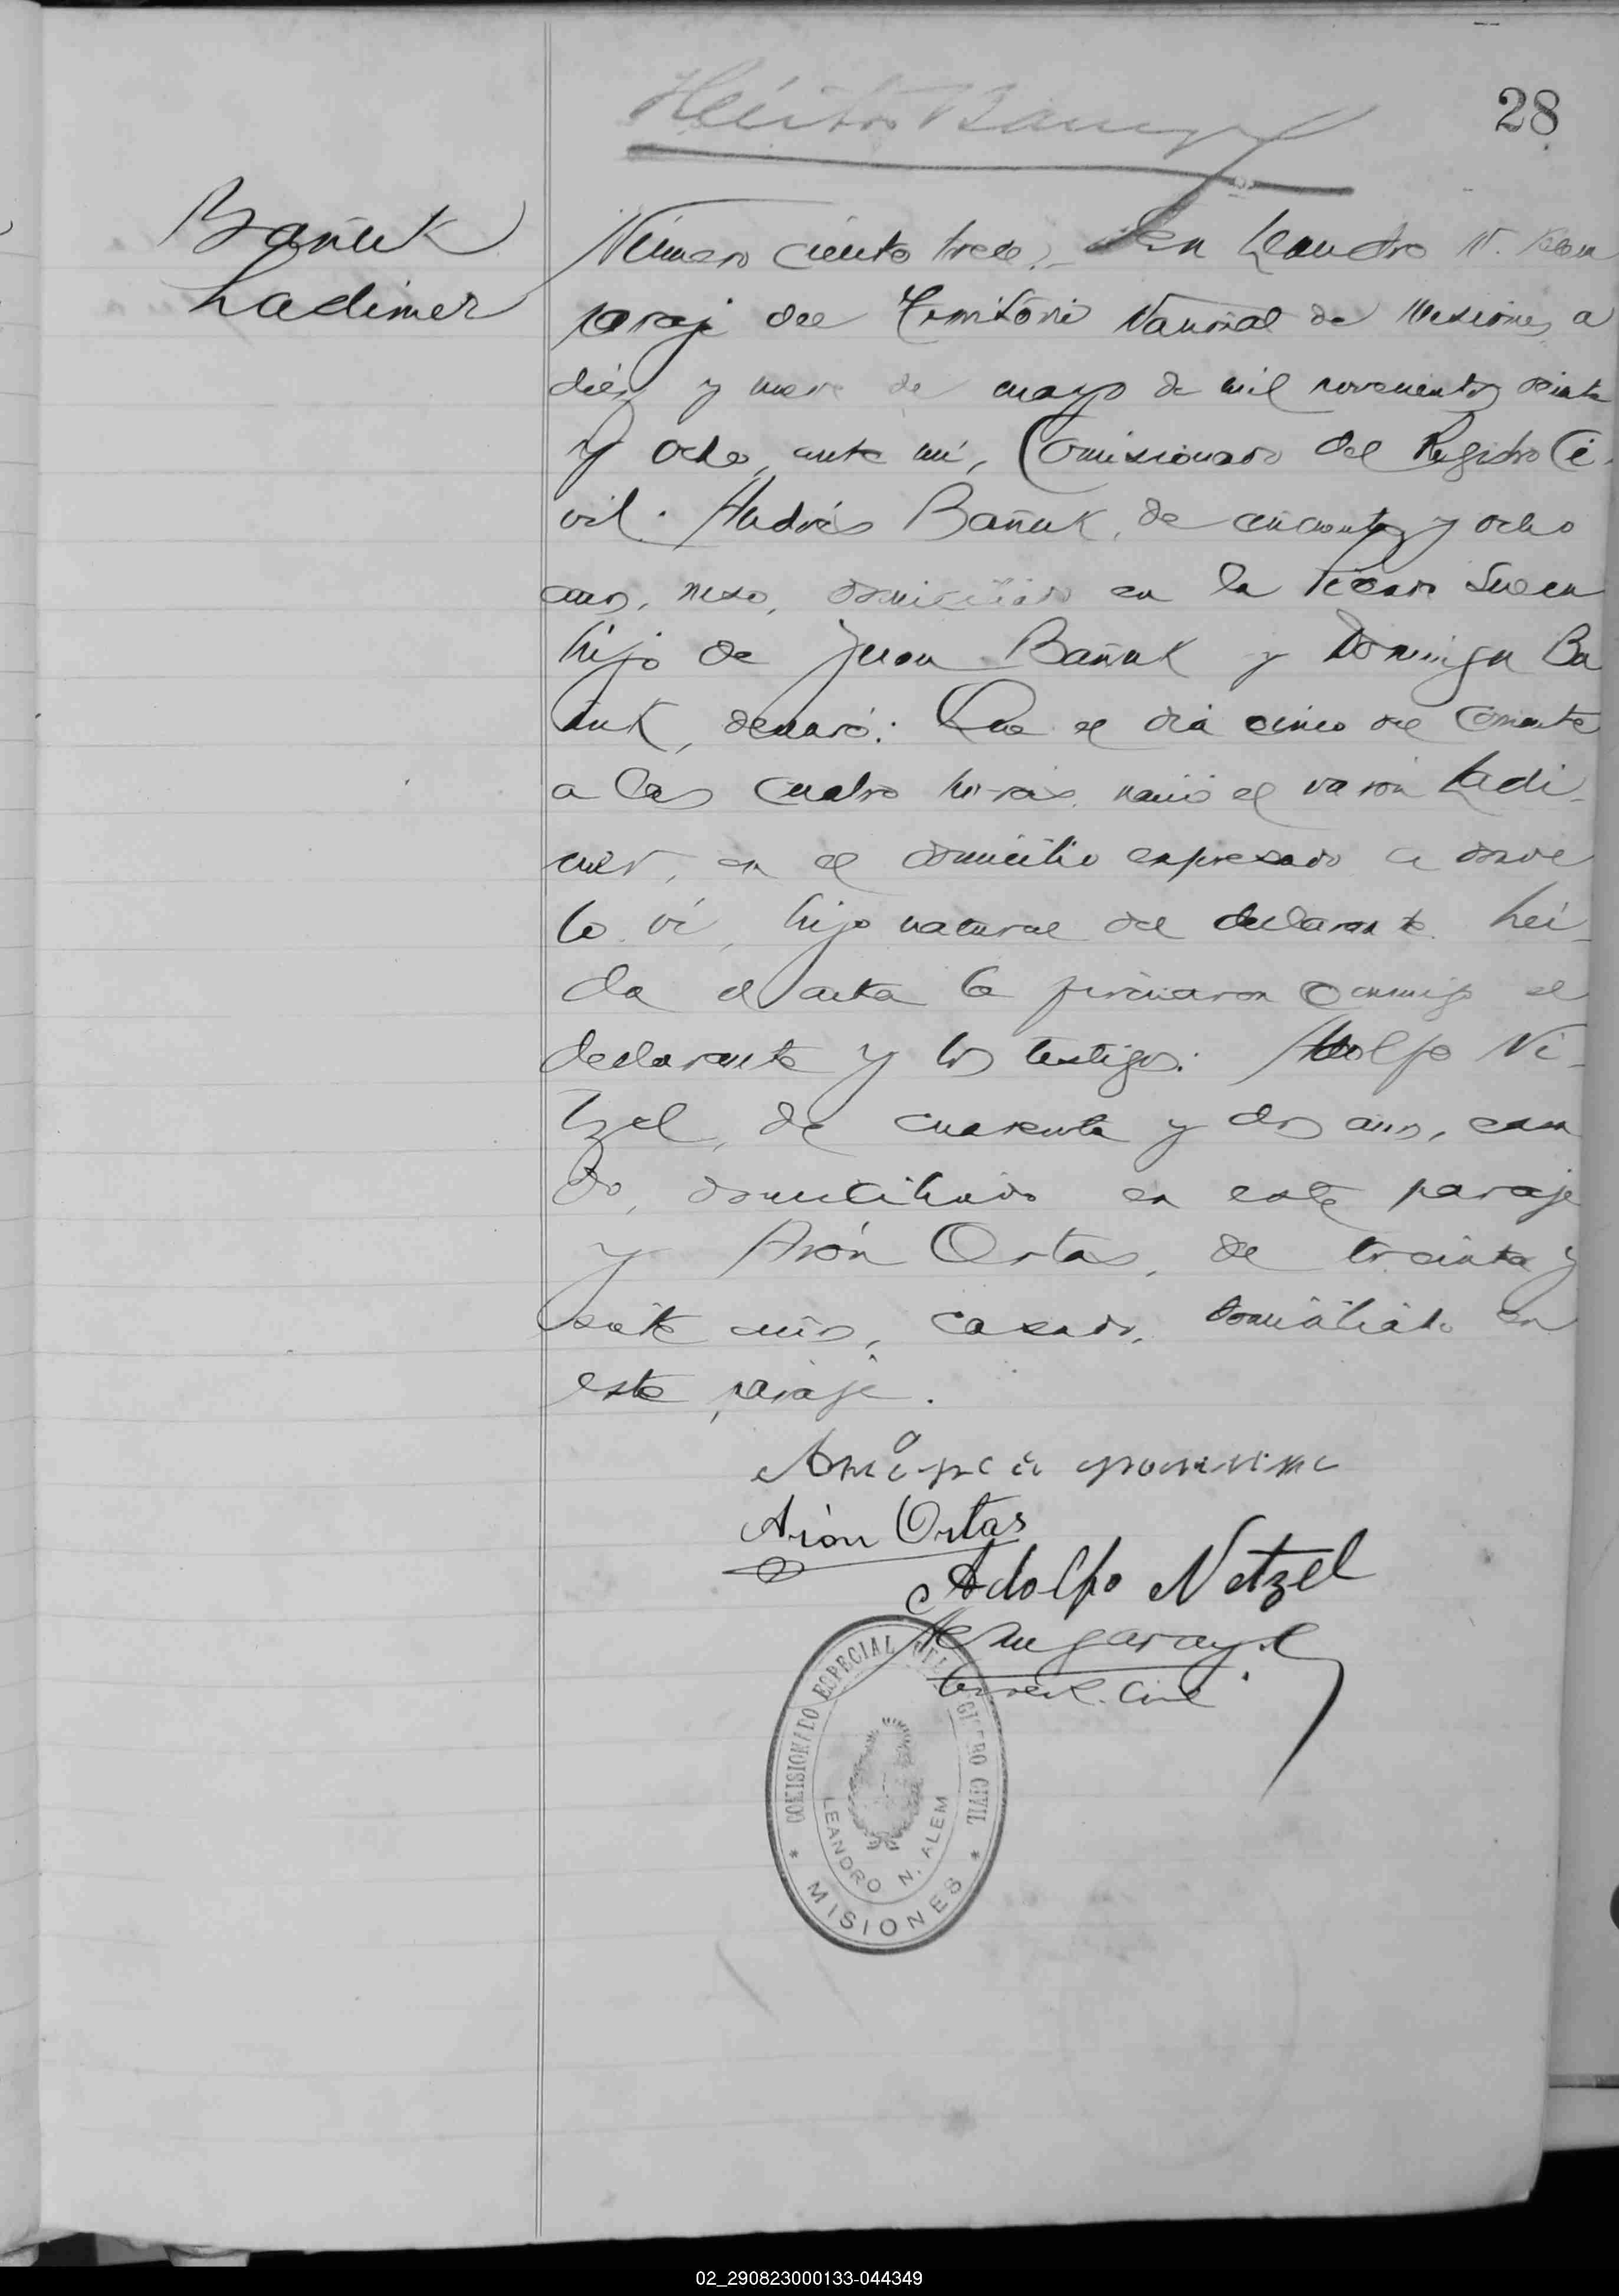 28
Bañuk
Ladimer
Número ciento trece. En Leandro N. Alem
paraje del Territorio Nacional de Misiones, a
diez y nueve de mayo de mil novecientos treinta
y ocho, ante mí, Comisionado del Registro Ci-
vil. Andrés Bañuk, de cincuenta y ocho
años, ruso, domiciliado en la Picada Sueca
hijo de Juan Bañuk y Dominga Ba
ñuk, declaró: Que el día cinco del corriente
a las cuatro horas nació el varón Ladi-
mer, en el domicilio expresado a donde
lo ví, hijo natural del declarante. Leí-
da el acta la firmaron conmigo el
declarante y los testigos: Adolfo Ne-
tzel, de cuarenta y dos años, casa
do, domiciliado en este paraje
y Arón Ortas, de treinta y
siete años, casado, domiciliado en
este paraje.
Arón Ortas
Adolfo Netzel
COMISIONADO ESPECIAL DEL REGISTRO CIVIL
LEANDRO N. ALEM
* MISIONES *
02_290823000133-044349